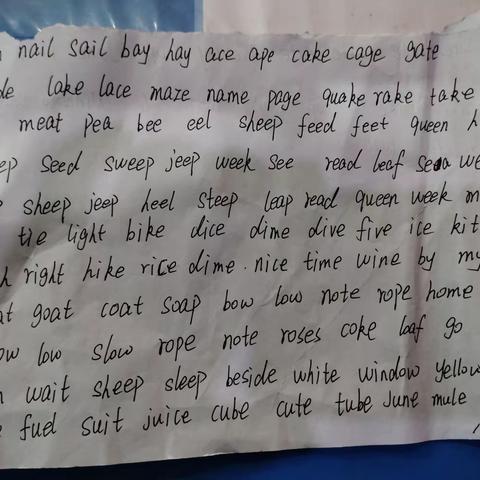 nail sail bay hay ace ape cake cage gate
lake lace maze name page quake rake take
meat pea bee eel sheep feed feet queen
seed sweep jeep week see read leaf
sheep jeep heel steep leap read queen week
tie light bike dice dime dive five ice
right hike rice dime . nice time wine by my
goat coat soap bow low note rope home
low slow rope note roses coke loaf go
wait sheep sleep beside white window yellow
fuel suit juice cube cute tube June mule